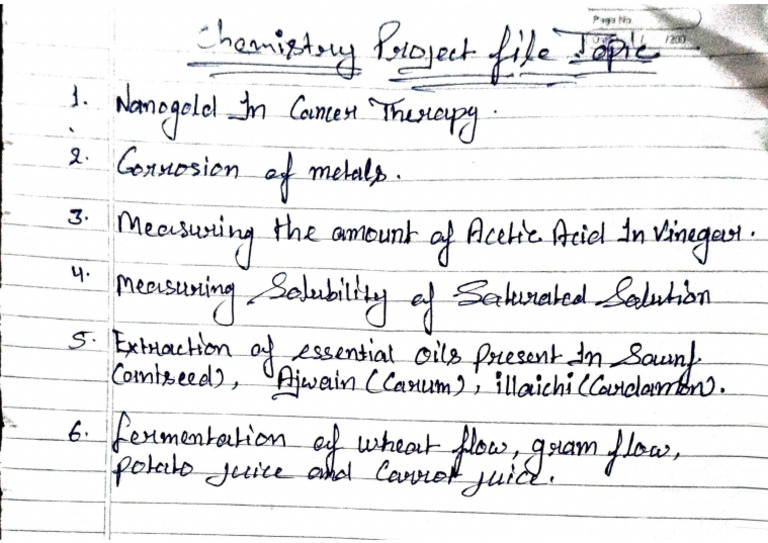 Page No.
/200
Chemistry Project file Topic
1. Nanogold In Cancer Therapy.
2. Corrosion of metals.
3. Measuring the amount of Acetic Acid In Vinegar.
4. Measuring Solubility of Saturated Solution
5. Extraction of essential oils Present In Saunf
(aniseed), Ajwain (Carum), illaichi (Cardamon).
6. fermentation of wheat flow, gram flow,
potato juice and Carrot juice.